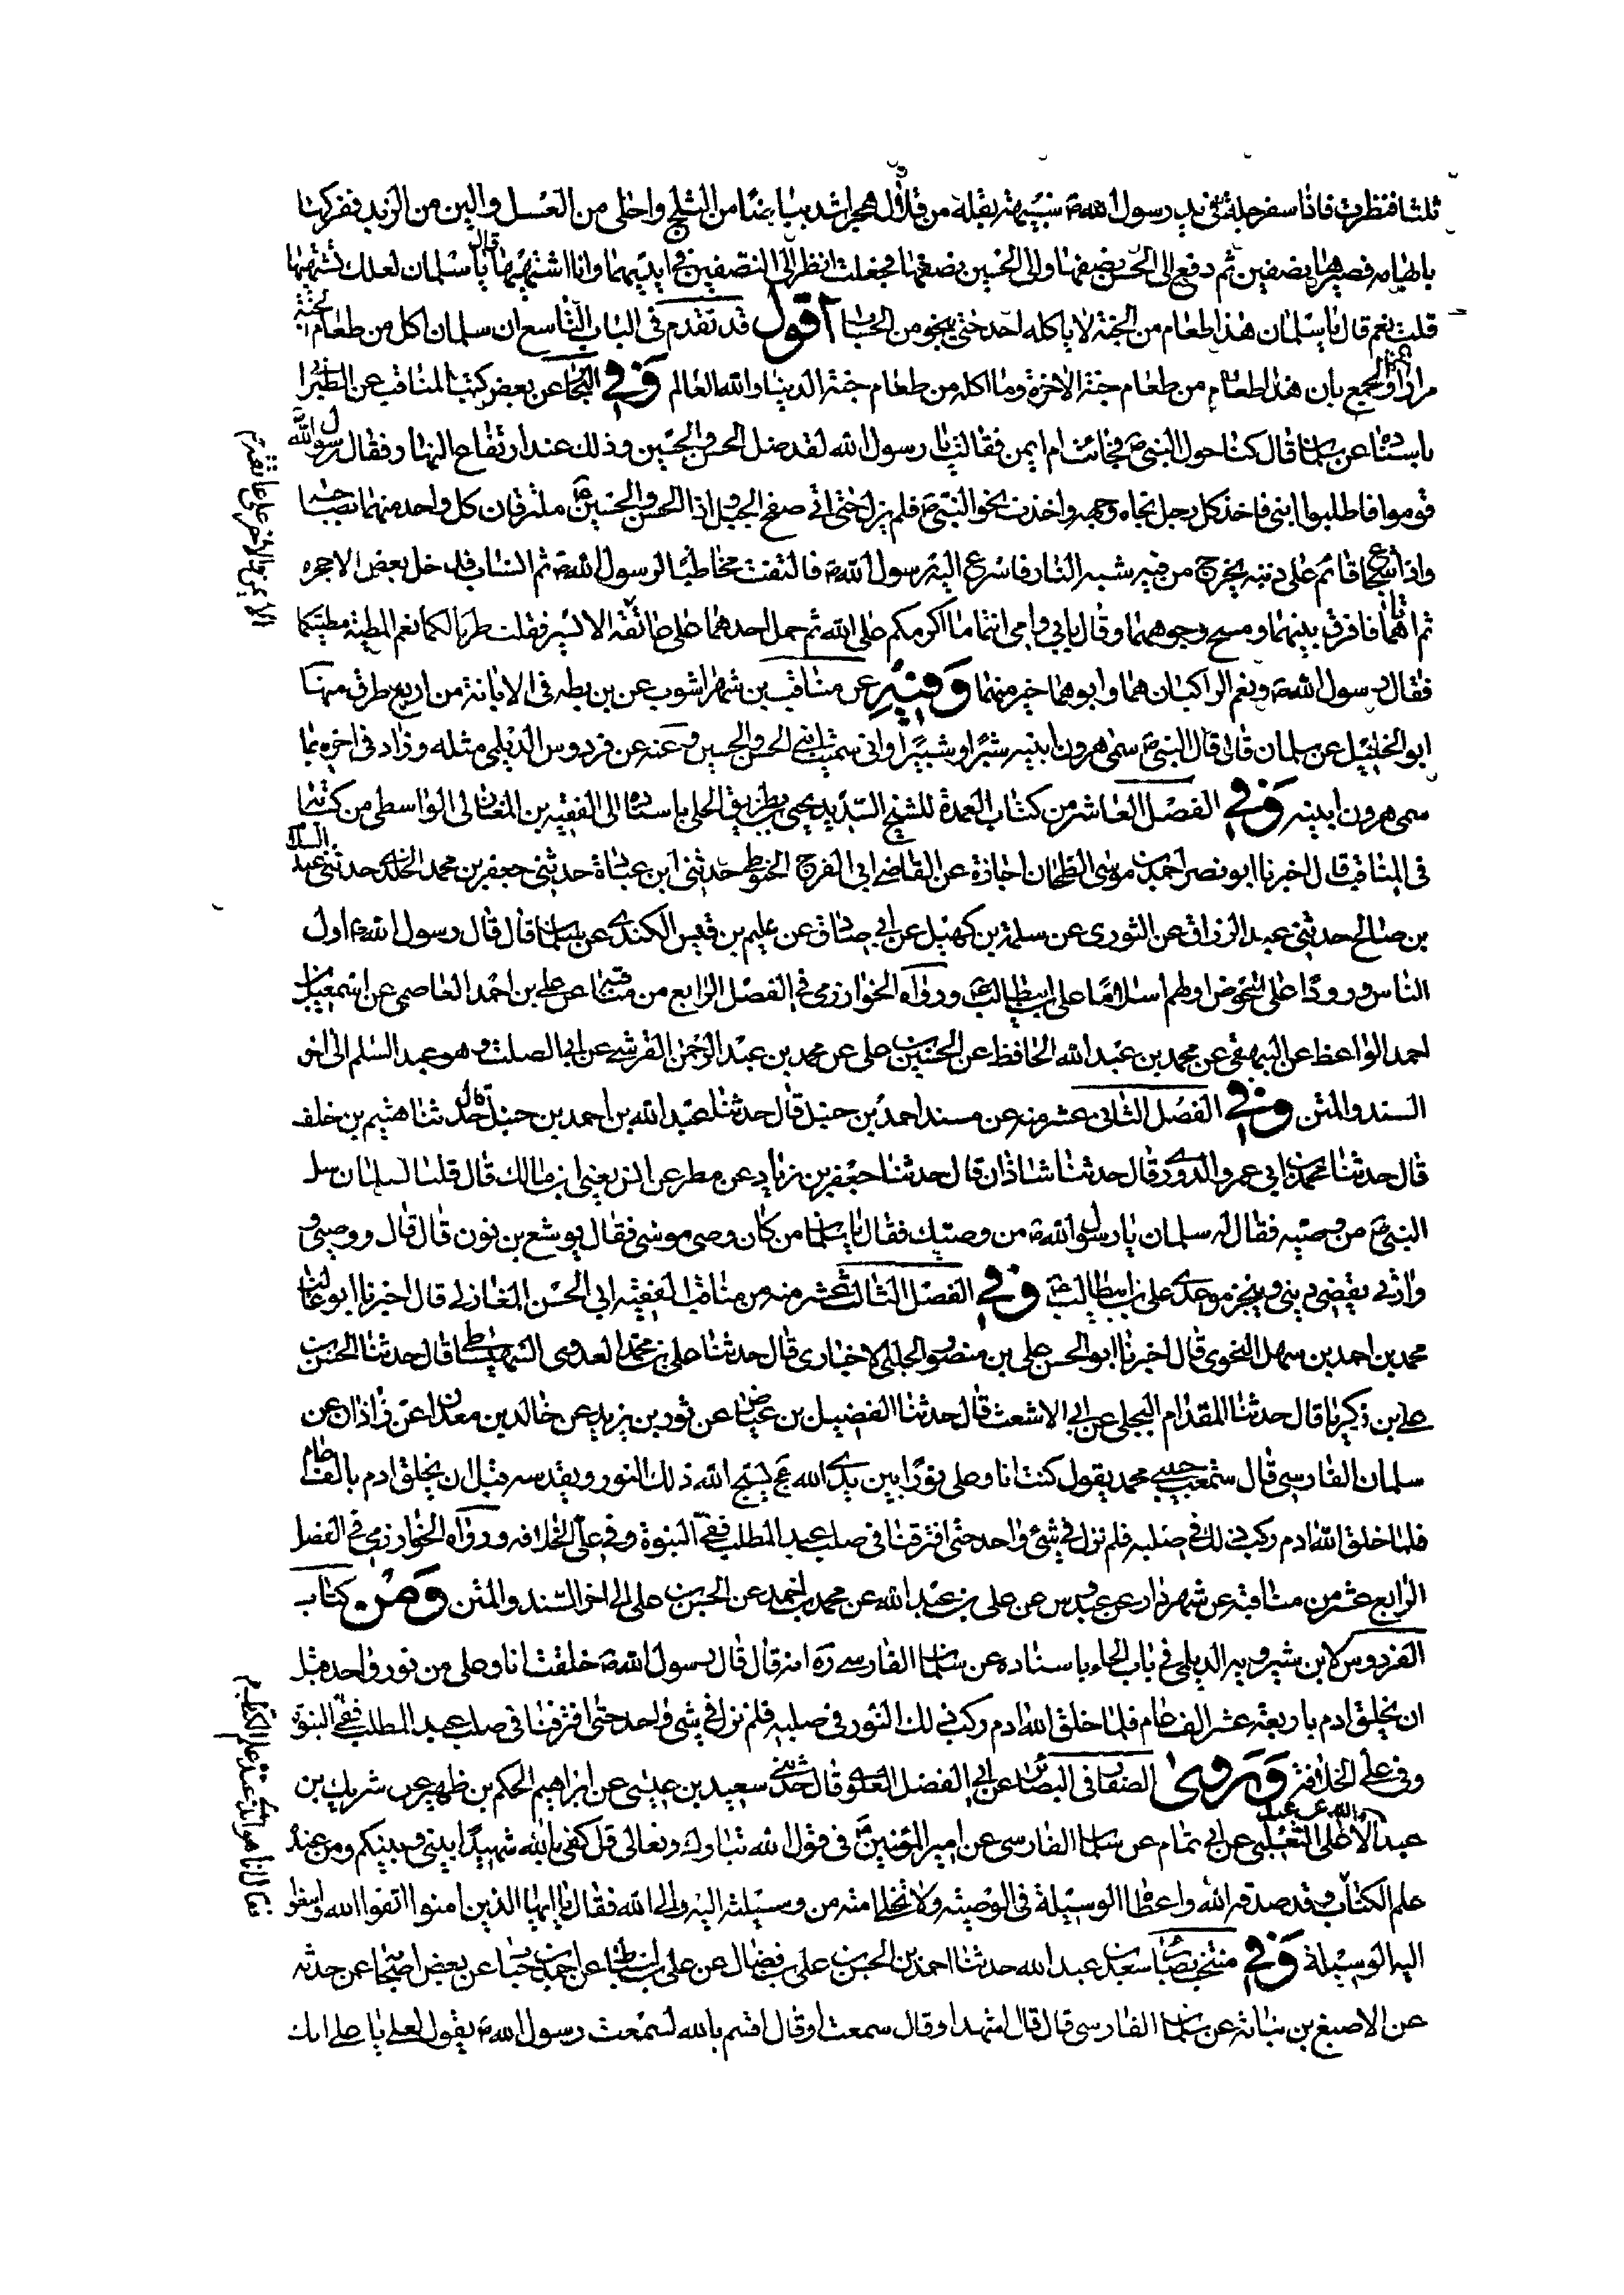 ثلثا فنظرت فاذا سفرجلة في يد رسول الله ص شبيهة بقلة من قلال هجر اشد بياضا من الثلج واحلى من العسل والين من الزبد ففركها
بابهامه فصيرها نصفين ثم دفع الى الحسن نصفها والى الحسين نصفها فجعلت انظر الى النصفين في ايديهما وانا اشتهيها قال يا سلمان لعلك تشتهيها
قلت نعم قال يا سلمان هذا طعام من الجنة لا ياكله احد حتى ينجو من الحساب اقول قد تقدم في الباب التاسع ان سلمان اكل من طعام الجنة
مرارا والجمع بان هذا طعام من طعام جنة الاخرة وما اكله من طعام جنة الدنيا والله العالم وفي البحار عن بعض كتب المناقب عن الطبراني
باسناده عن سلمان قال كنا حول النبي ص فجائت ام ايمن فقالت يا رسول الله لقد ضل الحسن والحسين وذلك عند ارتفاع النهار فقال رسول الله
قوموا فاطلبوا ابني فاخذ كل رجل تجاه وجهه واخذت نحو النبي ص فلم يزل حتى اتى صفح الجبل واذا الحسن والحسين ع ملتزقان كل واحد منهما بصاحبه
واذا شجاع قائم على ذنبه يخرج من فيه شبه النار فاسرع اليه رسول الله ص فالتفت مخاطبا لرسول الله ص ثم انساب فدخل بعض الاجحرة
ثم اتاهما فافرق بينهما ومسح وجوههما وقال بابي وامي انتما ما اكرمكم على الله ثم حمل احدهما على عاتقه الايسر فقلت طوبا لكما نعم المطية مطيتكما
فقال رسول الله ص ونعم الراكبان هما وابوهما خير منهما وفيه عن مناقب بن شهراشوب عن بن بطه في الابانة من اربع طرق منها
ابو الخليل عن سلمان قال قال النبي ص سمى هرون ابنيه شبرا وشبيرا واني سميت ابني الحسن والحسين وعنه عن فردوس الديلمي مثله وزاد في اخره بما
سمى هرون ابنيه وفي الفصل العاشر من كتاب العمدة للشيخ السديد يحيى بن بطريق الحلي باسناده الى الفقيه بن المغازلي الواسطي من كتابه
في المناقب قال اخبرنا ابو نصر احمد بن موسى الطحان اجازة عن القاضي ابي الفرج الخيوطي حدثني ابن عباة حدثني جعفر بن محمد الخلدي حدثني عبد السلام
بن صالح حدثني عبد الرزاق عن الثوري عن سلمة بن كهيل عن ابي صادق عن عليم بن قيس الكندي عن سلمان قال قال رسول الله ص اول
الناس ورودا على الحوض اولهم اسلاما علي بن ابيطالب ع ورواه الخوارزمي في الفصل الرابع من مناقبه عن علي بن احمد العاصمي عن اسمعيل بن
احمد الواعظ عن البيهقي عن محمد بن عبد الله الحافظ عن الحسين بن علي عن محمد بن عبد الرحمن القرشي عن ابي الصلت وهو عبد السلم الى اخر
السند والمتن وفي الفصل الثاني عشر منه عن مسند احمد بن حنبل قال حدثنا عبد الله بن احمد بن حنبل قال حدثنا هشيم بن خلف
قال حدثنا محمد بن ابي عمر والدوري قال حدثنا شاذان قال حدثنا جعفر بن زياد عن مطر عن انس يعني ابن مالك قال قلنا لسلمان سل
النبي ص من وصيه فقال له سلمان يا رسول الله ص من وصيك فقال يا سلمان من كان وصي موسى فقال يوشع بن نون قال قال ووصيي و
وارثي يقضي ديني وينجز موعدي علي بن ابيطالب ع وفي الفصل الثالث عشر منه من مناقب الفقيه ابي الحسن المغازلي قال اخبرنا ابو غالب
محمد بن احمد بن سهل النحوي قال اخبرنا ابو الحسن علي بن منصور الحلبي الاخباري قال حدثنا علي بن محمد العدوي الشمشاطي قال حدثنا الحسن بن
علي بن زكريا قال حدثنا المقدام العجلي عن ابي الاشعث قال حدثنا الفضيل بن عياض عن ثور بن يزيد عن خالد بن معدان عن زاذان عن
سلمان الفارسي قال سمعت حبيبي محمد يقول كنت انا وعلي نورا بين يدي الله عج يسبح الله ذلك النور ويقدسه قبل ان يخلق ادم بالف عام
فلما خلق الله ادم ركب ذلك في صلبه فلم نزل في شئ واحد حتى افترقنا في صلب عبد المطلب ففي النبوة وفي علي الخلافه ورواه الخوارزمي في الفصل
الرابع عشر من مناقبه عن شهردار عن عبدوس عن علي بن عبد الله عن محمد بن احمد عن الحسن بن علي الى اخر السند والمتن ومن كتاب
الفردوس لابن شيرويه الديلمي في باب الخاء باسناده عن سلمان الفارسي ره انه قال قال رسول الله ص خلقت انا وعلي من نور واحد قبل
ان يخلق ادم باربعة عشر الف عام فلما خلق الله ادم ركب ذلك النور في صلبه فلم نزل في شئ واحد حتى افترقنا في صلب عبد المطلب ففي النبوة
وفي علي الخلافة وروى الصفار في البصائر عن ابي الفضل العلوي قال حدثني سعيد بن عيسى عن ابراهيم الحكم بن ظهير عن شريك بن
عبد الله عن عبد الاعلى الثعلبي عن ابي تمام عن سلمان الفارسي عن امير المؤمنين ع في قول الله تبارك وتعالى قل كفى بالله شهيدا بيني وبينكم ومن عنده
علم الكتاب وقد صدقه الله واعطاه الوسيلة في الوصية ولا تخلى امته من وسيلته اليه والى الله فقال يا ايها الذين امنوا اتقوا الله وابتغوا
اليه الوسيلة وفي منتخب بصائر سعد بن عبد الله حدثنا احمد بن الحسن بن علي بن فضال عن علي بن اسباط عن احمد بن حباب عن بعض اصحابنا عمن حدثه
عن الاصبغ بن نباته عن سلمان الفارسي قال قال اشهد او قال سمعت او قال اقسم بالله لسمعت رسول الله ص يقول لعلي يا علي انك